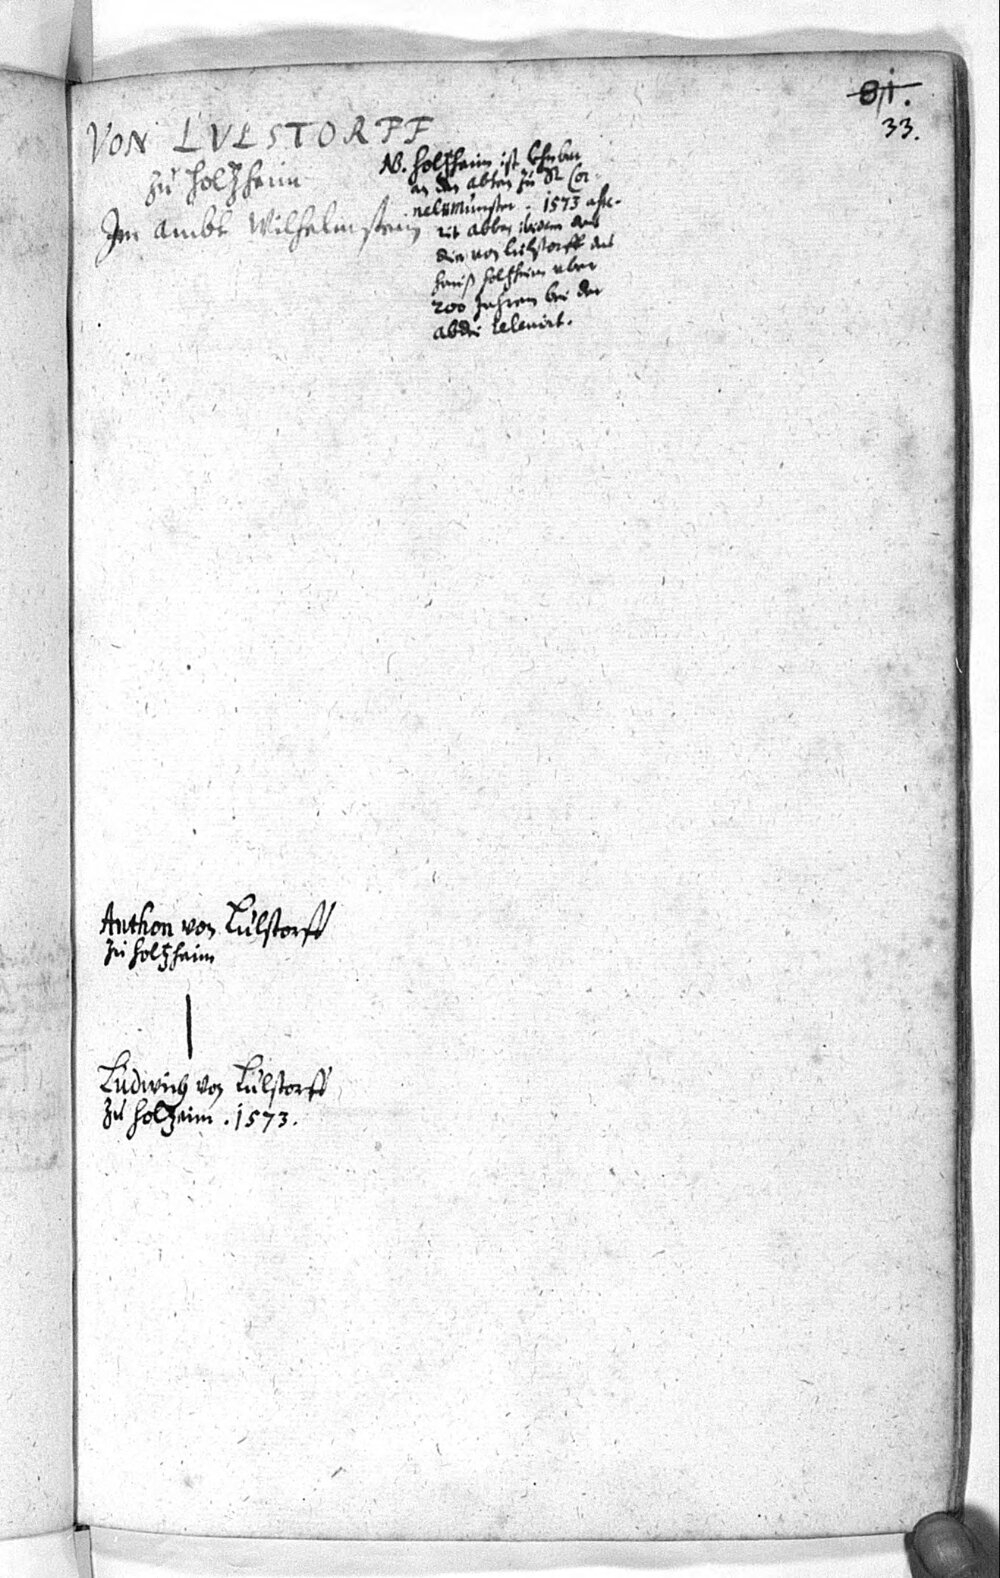 81.
33.
VON LVLSTORFF
zu Holtzheim
Im Ambt Wilhelmstein
NB. Holtzheim ist lehnbar
an den Abten zu St Cor-
nelismünster. 1573 asse-
rit abbas ibidem das
die von Lulstorff das
hauß Holtzheim uber
200 Jahren bei der
abdei releuirt.
Anthon von Lülstorff
zu Holtzheim
Ludwich von Lülstorff
zu Holtzeim. 1573.